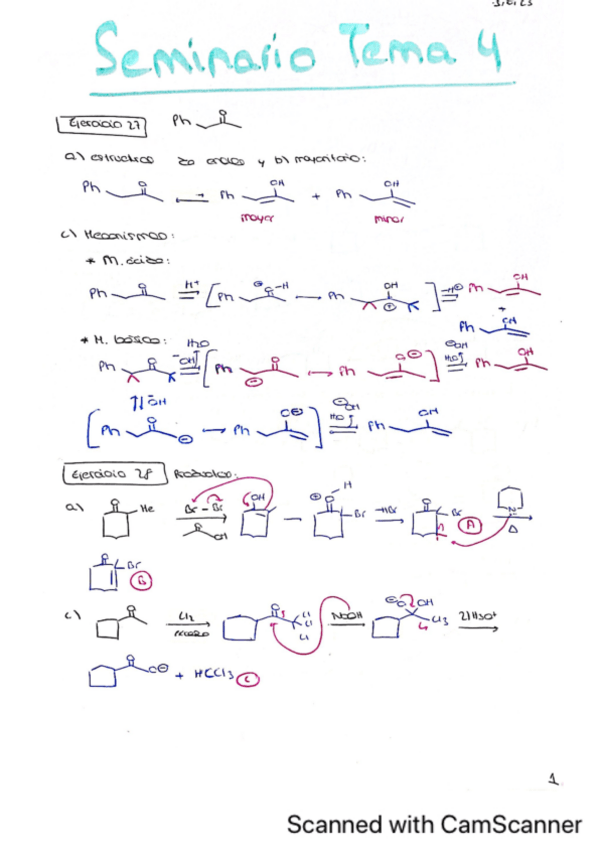 Seminario Tema 4
Ejercicio 27 Ph O
a) estructuras enoles y b) mayoritario:
Ph O Ph OH + Ph OH
mayor minor
c) Mecanismos:
* M. ácido:
Ph O H⁺ [ Ph O-H Ph OH ] Ph OH
+
Ph OH
* M. básico: H₂O
Ph O ⁻OH [ Ph O Ph O ] OH H₂O Ph OH
⁻OH
[ Ph O Ph O ] OH H₂O Ph OH
Ejercicio 28 Productos:
a) O Me Br - Br OH OH O H Br -HBr O Br A N Δ
O Br B
c) O Cl₂ O Cl Cl Cl NaOH O OH Cl₃ 2) H₃O⁺
O O + HCCl₃ C
1
Scanned with CamScanner